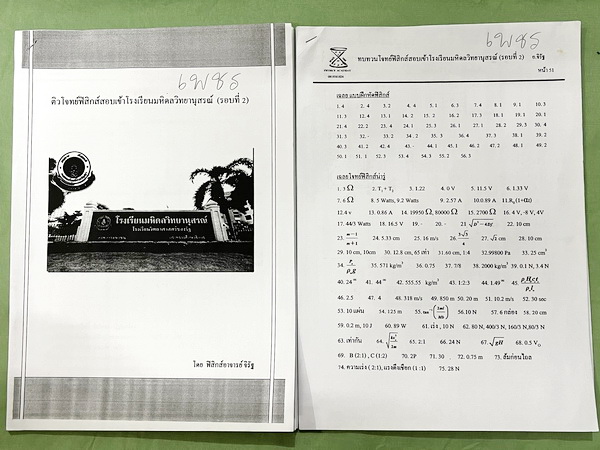 เพชร
ติวโจทย์ฟิสิกส์สอบเข้าโรงเรียนมหิดลวิทยานุสรณ์ (รอบที่ 2)
โรงเรียนมหิดลวิทยานุสรณ์
โดย ฟิสิกส์อาจารย์จิรัฐ
เพชร
ทบทวนโจทย์ฟิสิกส์สอบเข้าโรงเรียนมหิดลวิทยานุสรณ์ (รอบที่ 2) อ.จิรัฐ
หน้า 51
เฉลย แบบฝึกหัดฟิสิกส์
1. 4 2. 4 3. 2 4. 4 5. 1 6. 3 7. 4 8. 1 9. 1 10. 3
11. 3 12. 4 13. 1 14. 2 15. 2 16. 2 17. 3 18. 1 19. 1 20. 1
21. 4 22. 2 23. 4 24. 1 25. 3 26. 1 27. 1 28. 2 29. 3 30. 4
31. 3 32. - 33. 2 34. 2 35. 3 36. 4 37. 3 38. 1 39. 2
40. 3 41. 2 42. 4 43. - 44. 1 45. 1 46. 2 47. 2 48. 1 49. 2
50. 1 51. 1 52. 3 53. 4 54. 3 55. 2 56. 3
เฉลยโจทย์ฟิสิกส์น่ารู้
1. 3 Ω 2. T₁ + T₂ 3. 1.22 4. 0 V 5. 11.5 V 6. 1.33 V
7. 6 Ω 8. 5 Watts, 9.2 Watts 9. 2.57 A 10. 0.89 A 11. R₀(1+αt)
12. 4 v 13. 0.86 A 14. 19950 Ω, 80000 Ω 15. 2700 Ω 16. 4 V, -8 V, 4V
17. 44/3 Watts 18. 16.5 V 19. - 20. - 22. 10 cm
24. 5.33 cm 25. 16 m/s 28. 10 cm
29. 10 cm, 10cm 30. 12.8 cm, 65 เท่า 31. 60 cm, 1:4 32. 99800 Pa 33. 25 cm³
35. 571 kg/m³ 36. 0.75 37. 7/8 38. 2000 kg/m³ 39. 0.1 N, 3.4 N
42. 555.55 kg/m³ 43. 1:2:3
46. 2.5 47. 4 48. 318 m/s 49. 850 m 50. 20 m 51. 10.2 m/s 52. 30 sec
53. 10 แผ่น 54. 125 m 56. 10 N 57. 6 กล่อง 58. 20 cm
59. 0.2 m, 10 J 60. 89 W 61. เร่ง , 10 N 62. 80 N, 400/3 N, 160/3 N, 80/3 N
63. เท่ากัน 65. 2:1 66. 24 N 68. 0.5 V₀
69. B (2:1) , C (1:2) 70. 2P 71. 30 72. 0.75 m 73. ล้มก่อนไถล
74. ความเร่ง ( 2:1), แรงดึงเชือก (1 :1) 75. 28 N